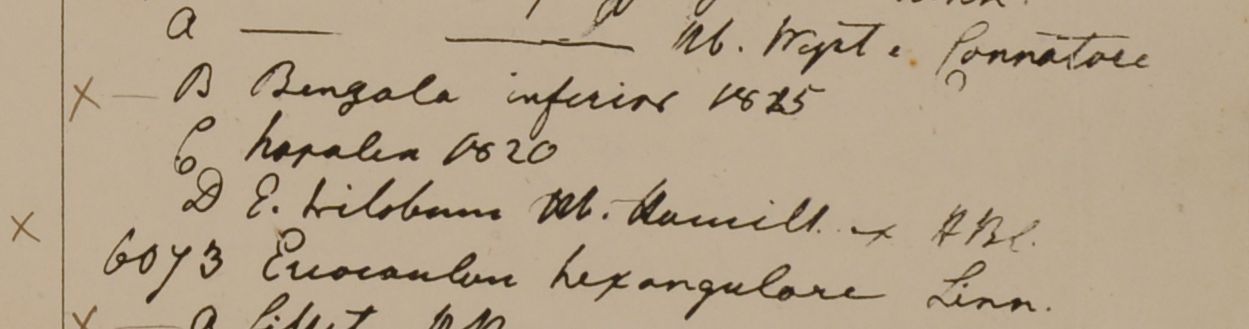 A — — Hb. Wight e Connatore
B Bengala inferior 1825
C Napalia 1820
D E. trilobum Hb. Hamilt. ex HBC.
6073 Eriocaulon hexangulare Linn.
a Sillet